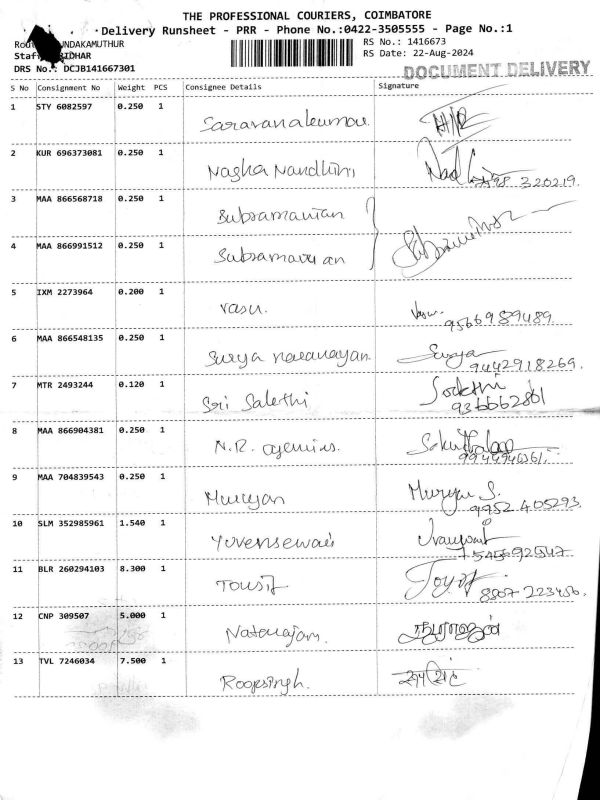 THE PROFESSIONAL COURIERS, COIMBATORE
Delivery Runsheet - PRR - Phone No.:0422-3505555 - Page No.:1
UNDAKAMUTHUR
RS No.: 1416673
RS Date: 22-Aug-2024
DRS No.: DCJB141667301
DOCUMENT DELIVERY
S No Consignment No Weight PCS Consignee Details Signature
1 STY 6082597 0.250 1 Saravanakumar
2 KUR 696373081 0.250 1 Nagha Nandhini
3 MAA 866568718 0.250 1 Subramanian
4 MAA 866991512 0.250 1 Subramanian
5 IXM 2273964 0.200 1 Vasu. Vasu. 9566989489
6 MAA 866548135 0.250 1 Surya narayanan Surya 9442918269.
7 MTR 2493244 0.120 1 Sri Sakthi Sakthi
8 MAA 866904381 0.250 1 N.R.
9 MAA 704839543 0.250 1 Murugan Murugan S. 9952405293
10 SLM 352985961 1.540 1
11 BLR 260294103 8.300 1 Tousif 8807 223456.
12 CNP 309507 5.000 1 Natarajan. நடராஜன்
13 TVL 7246034 7.500 1 Roopsingh.